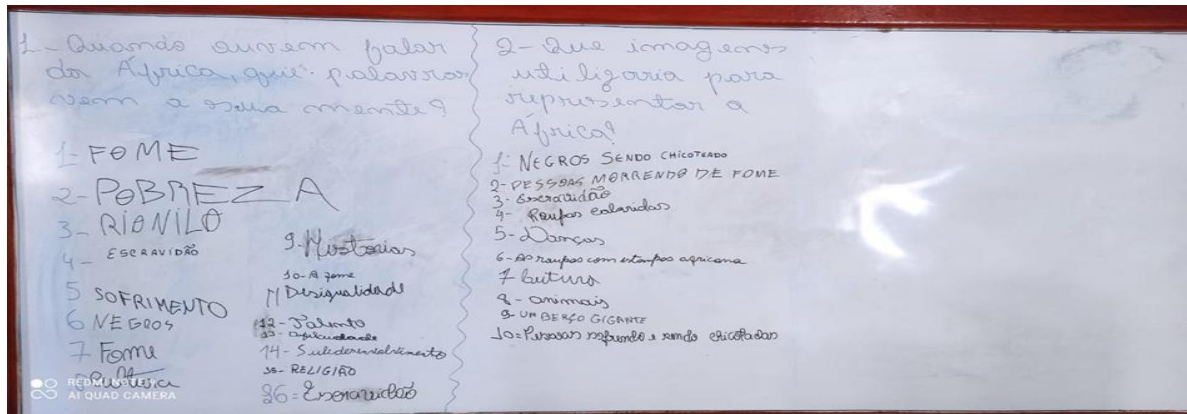 1- Quando ouvem falar
da África, que palavras
vem a sua mente?
1- FOME
2- POBREZA
3- RIO NILO
4- ESCRAVIDÃO
5 SOFRIMENTO
6 NEGROS
7 Fome
8 Cultura
9- Histórias
10- A fome
11 Desigualdade
12- Talento
13-
14- Subdesenvolvimento
15- RELIGIÃO
16= Escravidão
2- Que imagens
utilizaria para
representar a
África?
1- NEGROS SENDO CHICOTEADO
2- PESSOAS MORRENDO DE FOME
3- Escravidão
4- Roupas coloridas
5- Danças
6- As roupas com estampas africana
7 Cultura
8- animais
9- UM BERÇO GIGANTE
10= Pessoas sofrendo e sendo chicotadas
REDMI NOTE 8
AI QUAD CAMERA